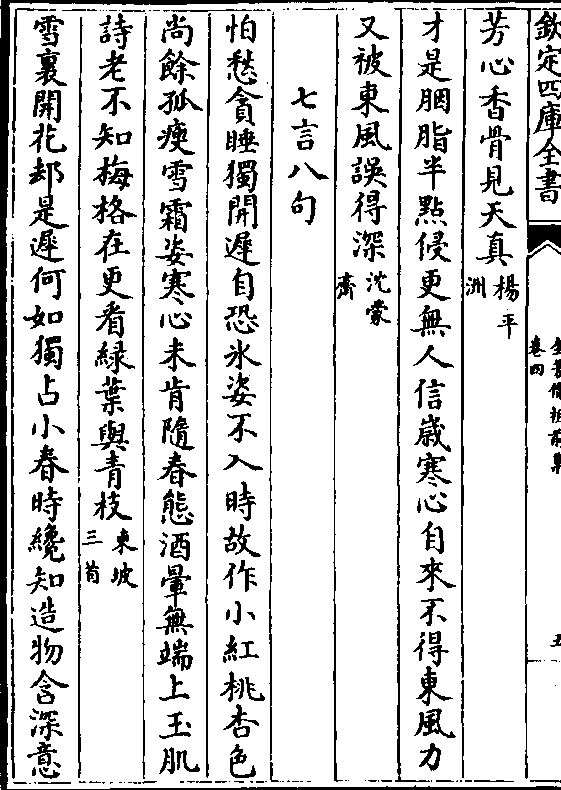 欽定四庫全書
卷四
五
芳心香骨見天真楊平洲
才是胭脂半點侵更無人信歲寒心自來不得東風力
又被東風誤得深沈蒙齋
七言八句
怕愁貪睡獨開遲自恐氷姿不入時故作小紅桃杏色
尚餘孤瘦雪霜姿寒心未肯隨春態酒暈無端上玉肌
詩老不知梅格在更看緑葉與青枝東坡三首
雪裏開花却是遲何如獨占小春時纔知造物含深意